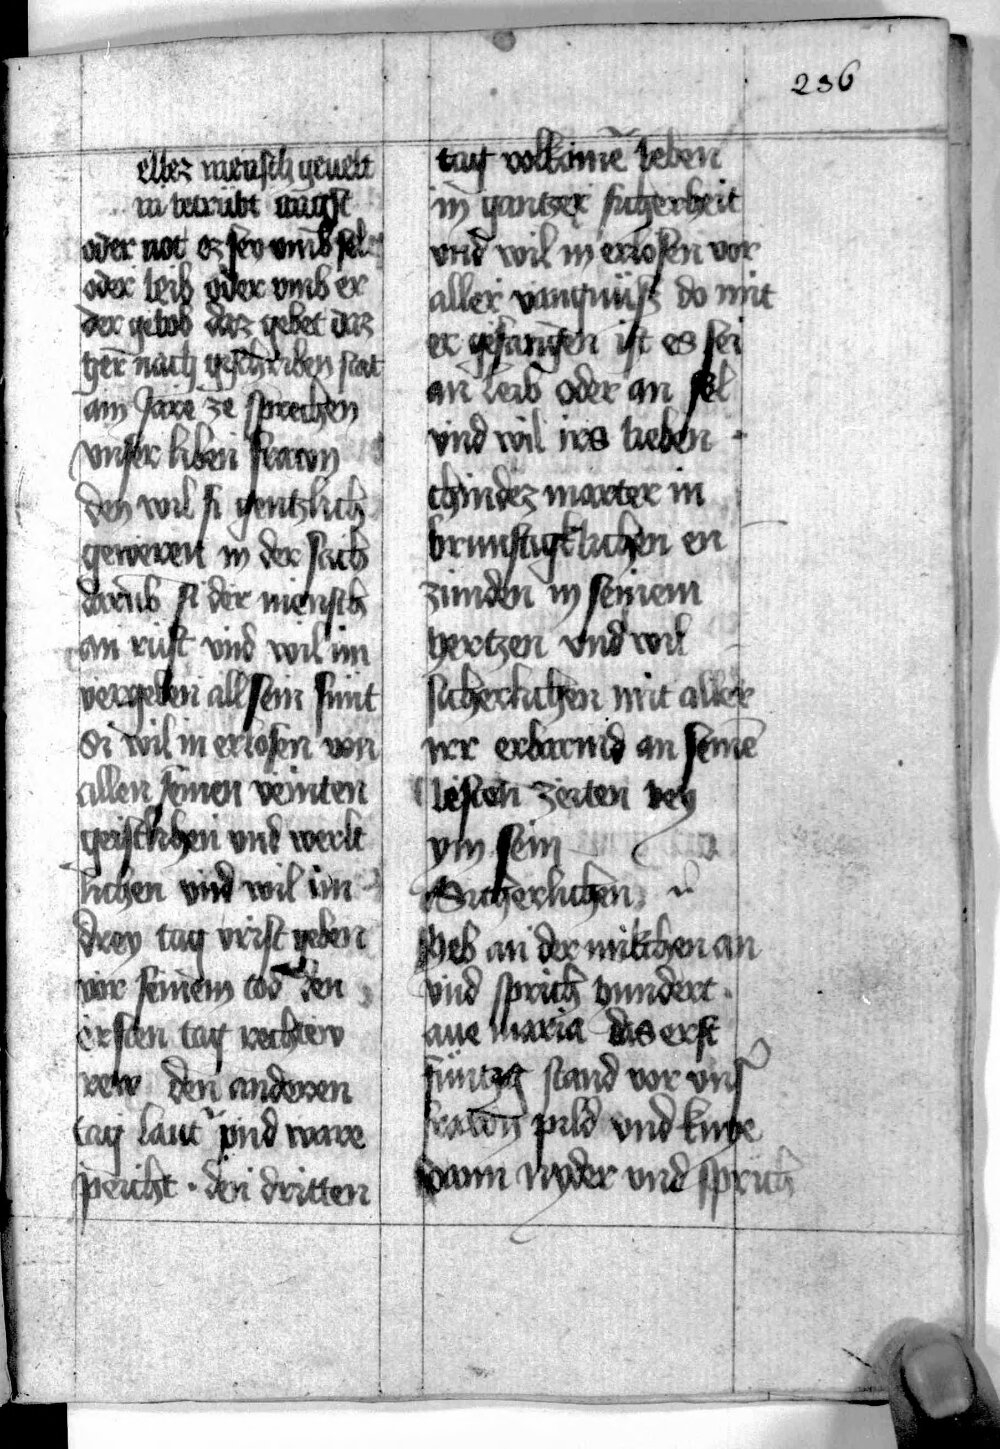 236
ellez mensch gevelt
in betrübt angst
oder not ez sey vmb sele
oder leib oder vmb er
der gelob daz gebet daz
her nach geschriben stat
am Jare ze sprechen
vnser liben frawn
den wil si gentzlich
geweren in der sach
darūb si der mensch
an rüft vnd wil im
vergeben all sein sünt
Si wil in erlosen von
allen seinen veinten
geistlichen vnd werlt
lichen vnd wil im
drey tag vrist geben
vor seinem tod den
ersten tag rechtew
rew den anderen
tag laut vnd ware
peicht . den dritten
tag volkōmē leben
in gantzer sicherheit
vnd wil in erlosen vor
aller vangnüsz do mit
er gefangen ist es sei
an leib oder an sel
vnd wil irs lieben
chindez marter in
brunstigklichen en
zünden in seinem
hertzen vnd wil
sicherlichen mit aller
irr erbarmd an seinē
lesten zeiten bey
ym sein
Sicherlichen
Heb an der mitichen an
vnd sprich hundert
aue maria das erst
füntzg stand vor vnsʾ
frawn pild vnd knye
dann nyder vnd sprich